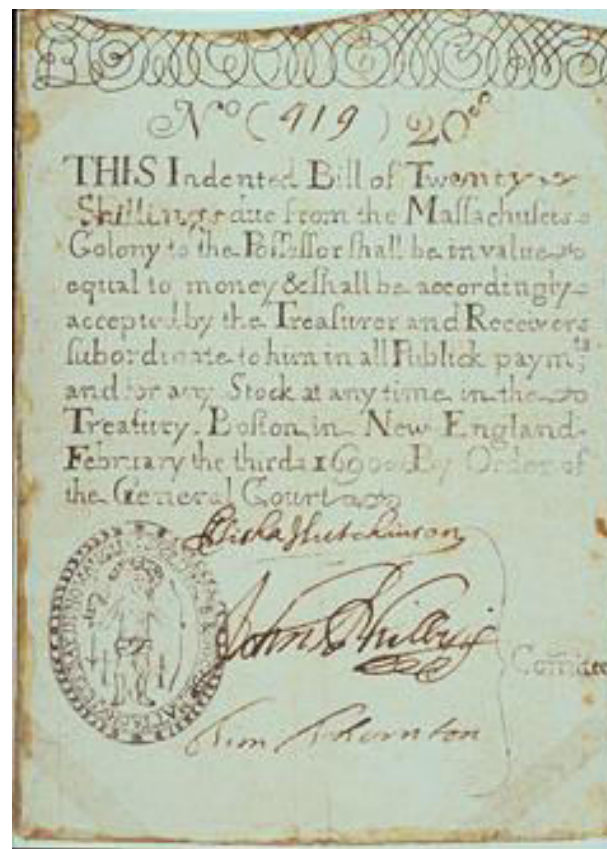 No (919) 20s
THIS Indented Bill of Twenty
Shillings due from the Maſſachuſets
Colony to the Poſſeſſor ſhall be in value
equal to money & ſhall be accordingly
accepted by the Treaſurer and Receivers
ſubordinate to him in all Publick paymts;
and for any Stock at any time in the
Treaſury. Boſton in New England
February the third 1690 By Order of
the General Court
Elisha Hutchinson
John Phillips
Comitee
Tim Thornton